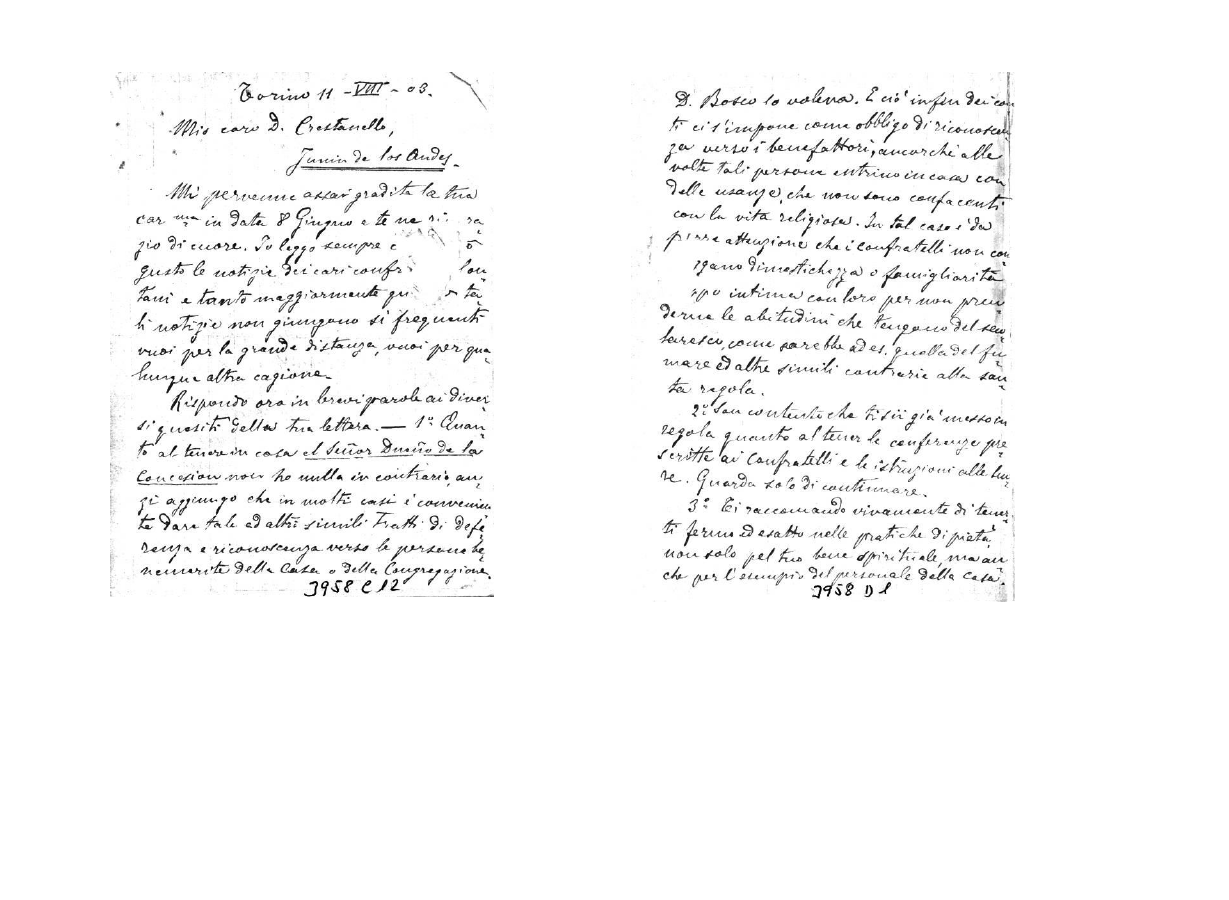 Torino 11 - VIII - 03.
Mio caro D. Crestanello,
Junin de los Andes.
Mi pervenne assai gradita la tua
car ma in data 8 Giugno e te ne ri ra
zio di cuore. Io leggo sempre c ō
gusto le notizie dei cari confr lon
tani e tanto maggiormente ta
li notizie non giungono sì frequenti
vuoi per la grande distanza, vuoi per qua
lunque altra cagione.
Rispondo ora in brevi parole ai diver
si quesiti della tua lettera. — 1° Quan
to al tener in casa el Señor Dueño de la
Concesion non ho nulla in contrario, an
zi aggiungo che in molti casi è convenien
te dare tale ed altri simili tratti di defe
renza e riconoscenza verso le persone be
nemerite della Casa o della Congregazione.
3958 C 12
D. Bosco lo voleva. E ciò in fin dei con
ti ci s'impone come obbligo di riconoscen
za verso i benefattori, ancorchè alle
volte tali persone entrino in casa con
delle usanze, che non sono confacenti
con la vita religiosa. In tal caso è da
porre attenzione che i confratelli non con
gano dimestichezza o famigliarità
ppo intima con loro per non pren
derne le abitudini che tengano del seco
laresco, come sarebbe ad es. quella del fu
mare ed altre simili contrarie alla san
ta regola.
2° Son contento che ti sii già messo in
regola quanto al tener le conferenze pre
scritte ai Confratelli e le istruzioni alle Suo
re. Guarda solo di continuare.
3° Ti raccomando vivamente di tener
ti fermo ed esatto nelle pratiche di pietà,
non solo pel tuo bene spirituale, ma an
che per l'esempio del personale della casa.
3958 D 1